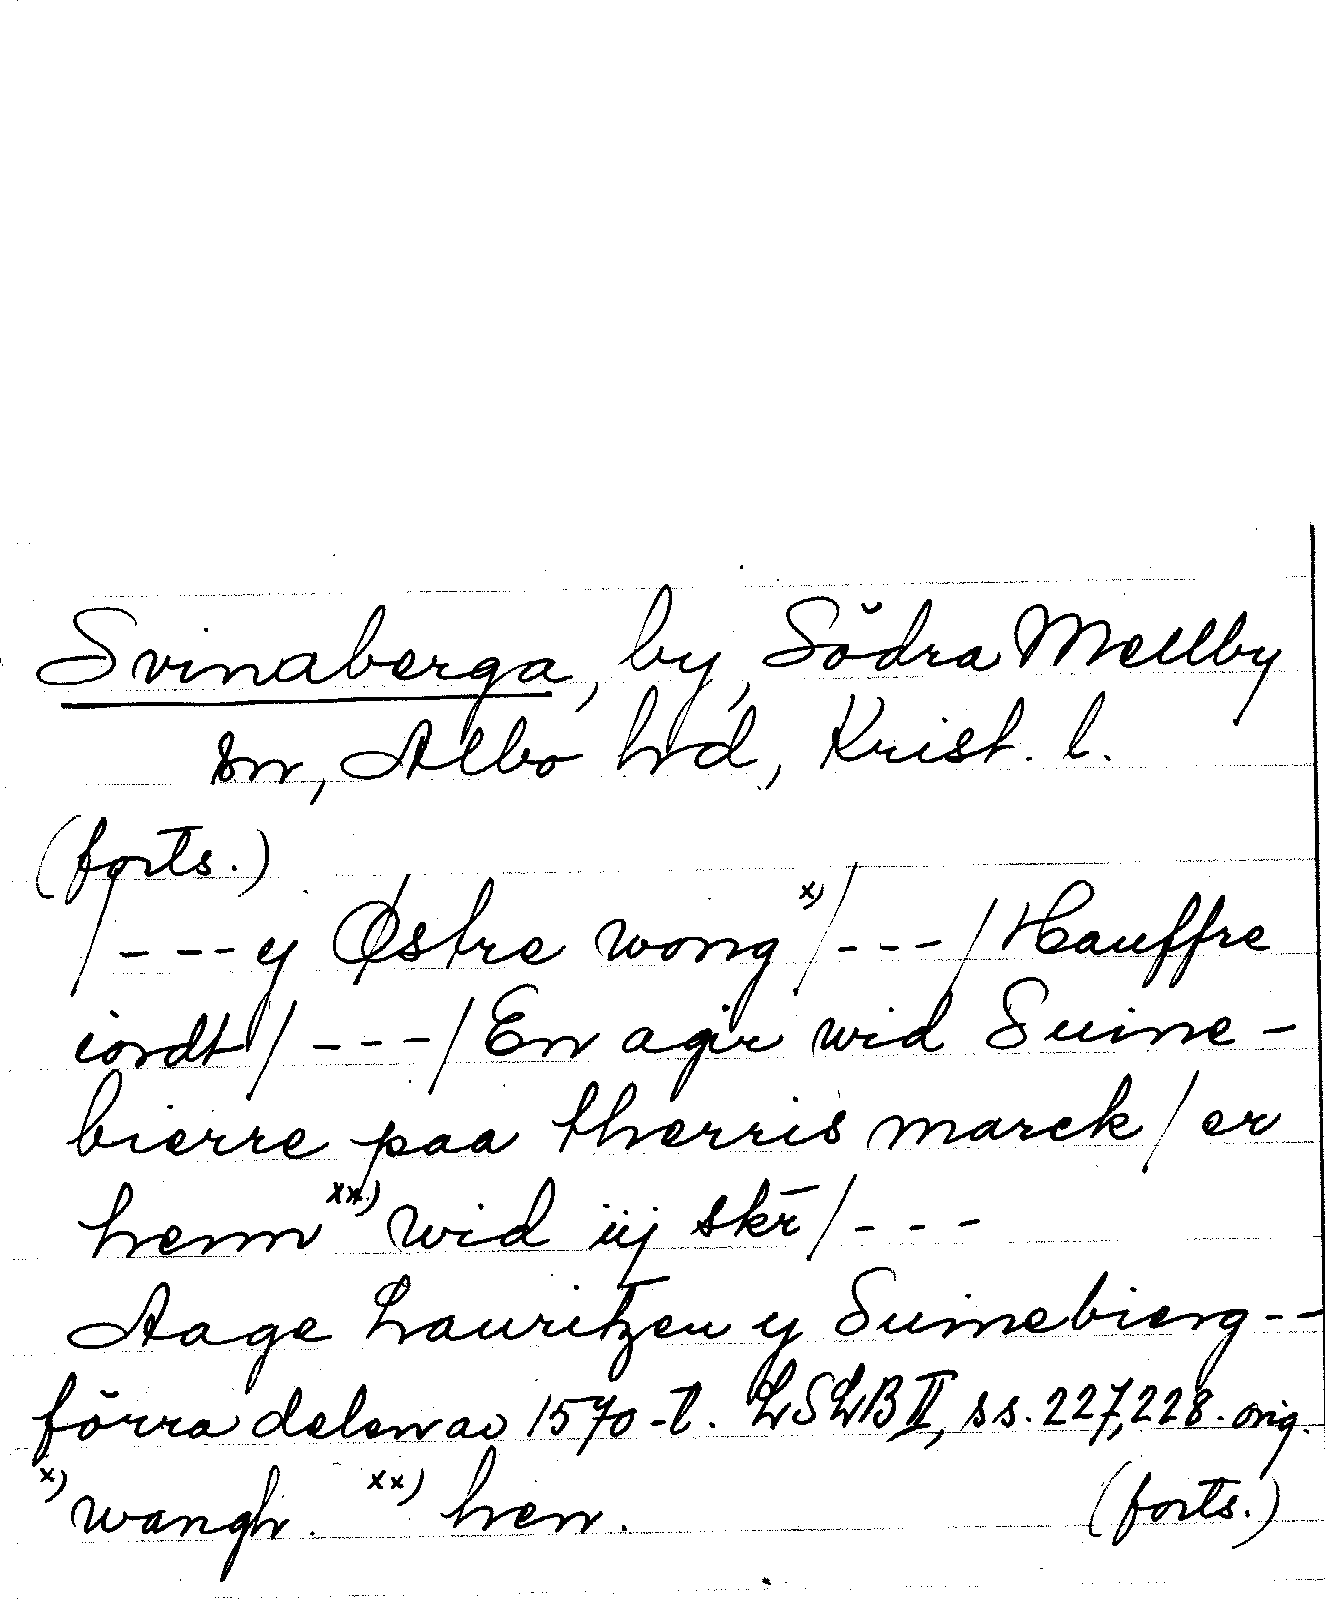 Svinaberga, by, Södra Mellby
sn, Albo hd, Krist. l.
(forts.)
/---y Østre wong x)/---/Hauffre
iordt/---/En agir wid Suine-
bierre paa therris marck/er
henn xx) wid iij skr̄/---
Aage Lauritzen y Suinebierg--
förra delen av 1570-t. LSLB II, ss. 227,228. orig.
x) wangh. xx) hen. (forts.)